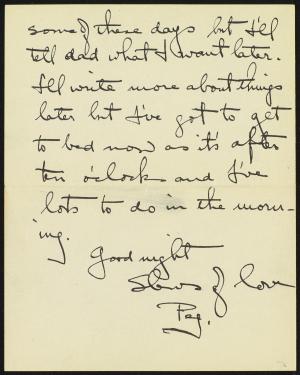 some of these days but I'll
tell dad what I want later.
I'll write more about things
later but I've got to get
to bed now as it's after
ten o'clock and I've
lots to do in the morn-
ing.
Good night
of love
Peg.